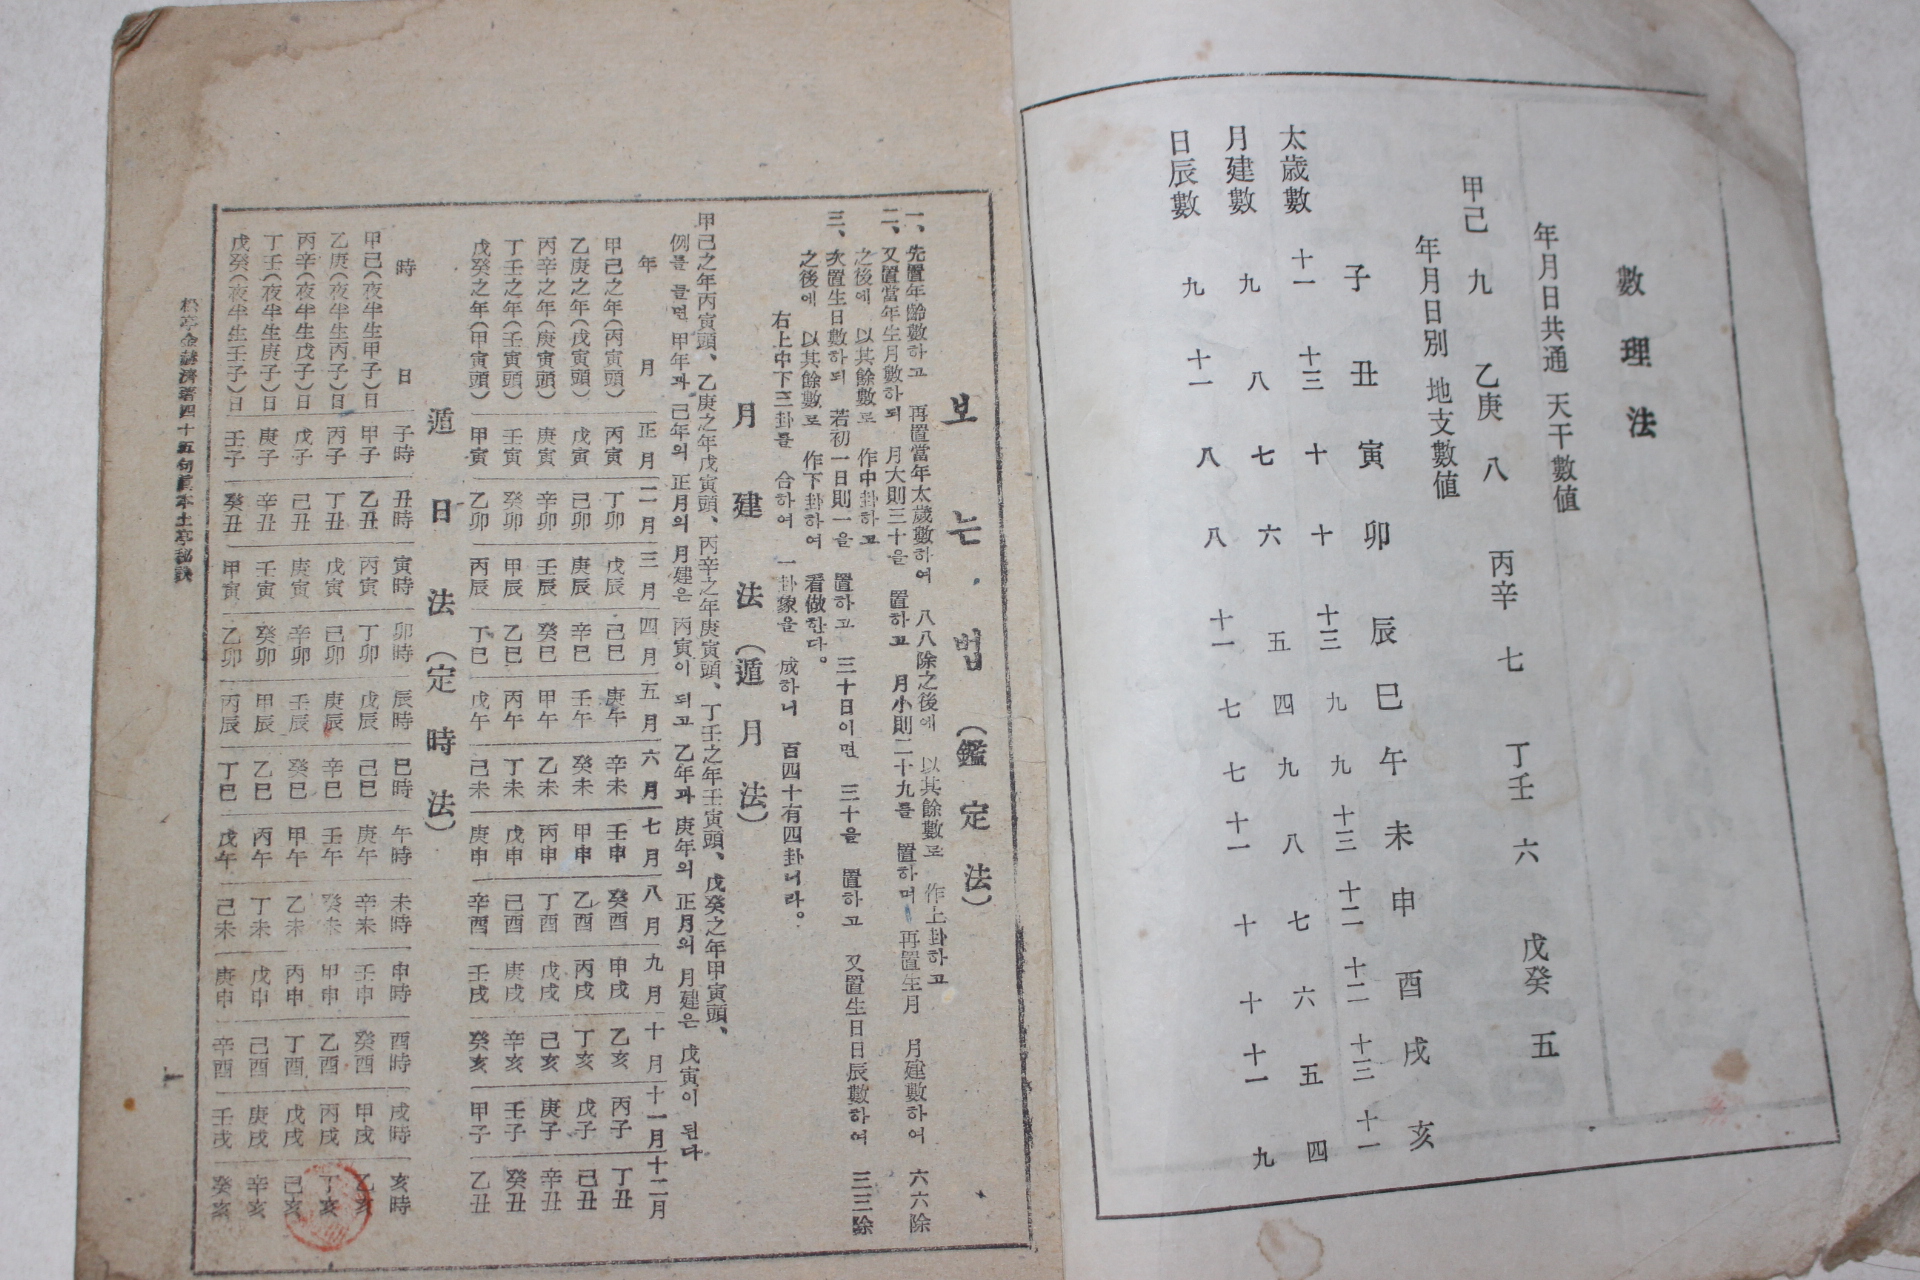 數理法
年月日共通 天干數値
甲己 九 乙庚 八 丙辛 七 丁壬 六 戊癸 五
年月日別 地支數値
子 丑 寅 卯 辰 巳 午 未 申 酉 戌 亥
太歲數 十一 十三 十 十 十三 九 九 十三 十二 十二 十三 十一
月建數 九 八 七 六 五 四 九 八 七 六 五 四
日辰數 九 十一 八 八 十一 七 七 十一 十 十 十一 九
보는 법 (鑑定法)
一、先置年齡數하고 再置當年太歲數하여 八八除之後에 以其餘數로 作上卦하고
二、又置當年生月數하되 月大則三十을 置하고 月小則二十九를 置하며 再置生月 月建數하여 六六除
之後에 以其餘數로 作中卦하고
三、次置生日數하되 若初一日則一을 置하고 三十日이면 三十을 置하고 又置生日日辰數하여 三三除
之後에 以其餘數로 作下卦하여 看做한다。
右上中下三卦를 合하여 一卦象을 成하니 百四十有四卦니라。
月建法(遁月法)
甲己之年丙寅頭、乙庚之年戊寅頭、丙辛之年庚寅頭、丁壬之年壬寅頭、戊癸之年甲寅頭、
例를 들면 甲年과 己年의 正月의 月建은 丙寅이 되고 乙年과 庚年의 正月의 月建은 戊寅이 된다
年 月 正月 二月 三月 四月 五月 六月 七月 八月 九月 十月 十一月 十二月
甲己之年(丙寅頭) 丙寅 丁卯 戊辰 己巳 庚午 辛未 壬申 癸酉 甲戌 乙亥 丙子 丁丑
乙庚之年(戊寅頭) 戊寅 己卯 庚辰 辛巳 壬午 癸未 甲申 乙酉 丙戌 丁亥 戊子 己丑
丙辛之年(庚寅頭) 庚寅 辛卯 壬辰 癸巳 甲午 乙未 丙申 丁酉 戊戌 己亥 庚子 辛丑
丁壬之年(壬寅頭) 壬寅 癸卯 甲辰 乙巳 丙午 丁未 戊申 己酉 庚戌 辛亥 壬子 癸丑
戊癸之年(甲寅頭) 甲寅 乙卯 丙辰 丁巳 戊午 己未 庚申 辛酉 壬戌 癸亥 甲子 乙丑
遁日法(定時法)
時 日 子時 丑時 寅時 卯時 辰時 巳時 午時 未時 申時 酉時 戌時 亥時
甲己(夜半生甲子)日 甲子 乙丑 丙寅 丁卯 戊辰 己巳 庚午 辛未 壬申 癸酉 甲戌 乙亥
乙庚(夜半生丙子)日 丙子 丁丑 戊寅 己卯 庚辰 辛巳 壬午 癸未 甲申 乙酉 丙戌 丁亥
丙辛(夜半生戊子)日 戊子 己丑 庚寅 辛卯 壬辰 癸巳 甲午 乙未 丙申 丁酉 戊戌 己亥
丁壬(夜半生庚子)日 庚子 辛丑 壬寅 癸卯 甲辰 乙巳 丙午 丁未 戊申 己酉 庚戌 辛亥
戊癸(夜半生壬子)日 壬子 癸丑 甲寅 乙卯 丙辰 丁巳 戊午 己未 庚申 辛酉 壬戌 癸亥
松亭金赫濟著四十五句眞本土亭秘訣
一